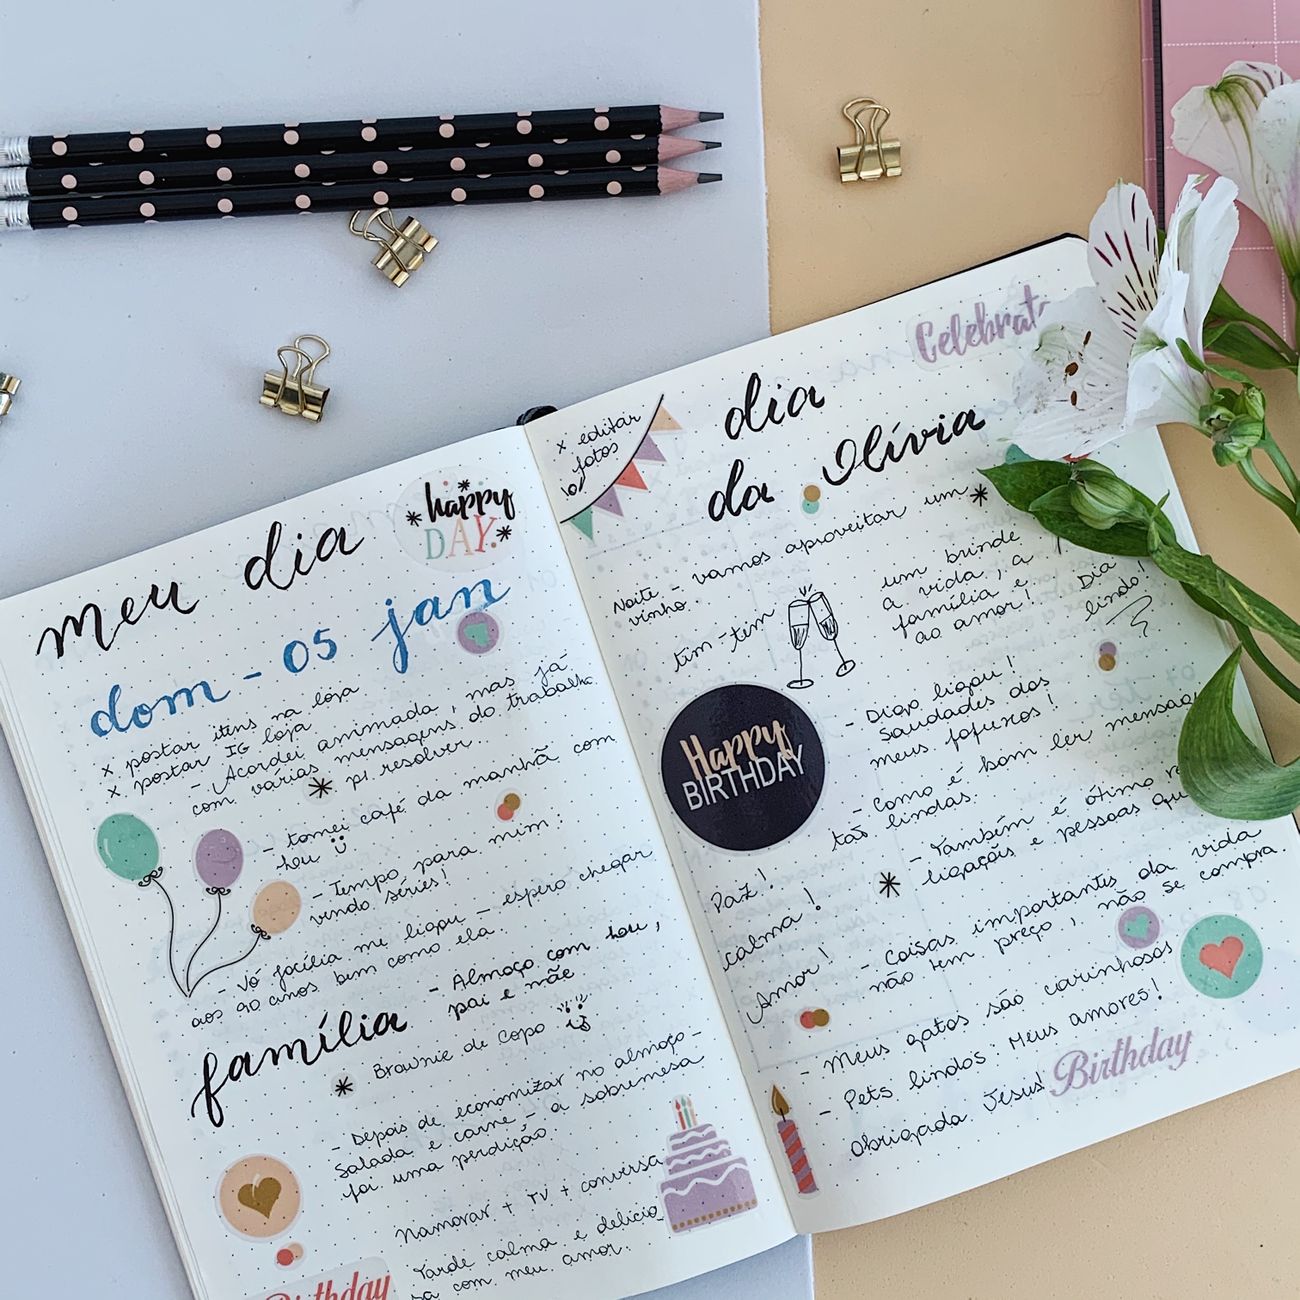 meu dia
happy
DAY.
dom - 05 jan
x postar itens na loja
x postar IG loja
- Acordei animada, mas já
com várias mensagens do trabalho
p/ resolver...
- tomei café da manhã com
- Tempo para mim:
vendo séries!
- Vó Jocília me ligou - espero chegar
aos 90 anos bem como ela.
família
- Almoço com
pai e mãe
Brownie de Copo
- Depois de economizar no almoço -
salada e carne - a sobremesa
foi uma perdição.
Namorar + TV + conversa
Tarde calma e delicio
sa com meu amor.
Birthday
x editar
fotos
Celebrat
dia
da Olívia
Noite - vamos aproveitar um
vinho.
tim-tim
um brinde
a vida, a
família e
ao amor!
Dia
lindo!
Happy
BIRTHDAY
- Diogo ligou!
Saudades dos
meus fofuxos!
- Como é bom ler mensagens
tão lindas.
- Também é ótimo
ligações e pessoas que
Paz!
calma!
Amor!
- Coisas importantes da vida
não tem preço, não se compra.
- Meus gatos são carinhosos
- Pets lindos. Meus amores!
Obrigada Jesus!
Birthday